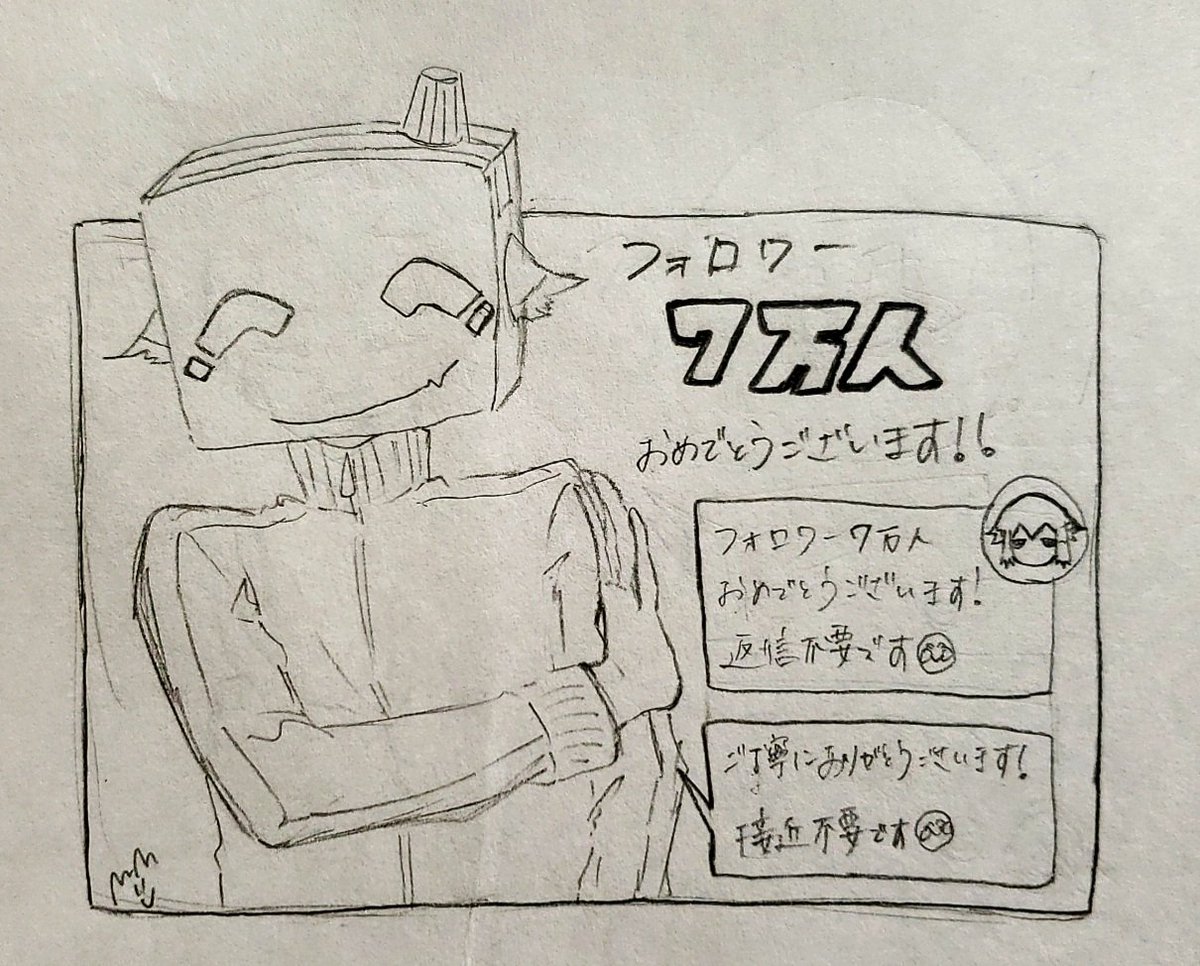 フォロワー
7万人
おめでとうございます!!
フォロワー7万人
おめでとうございます!
返信不要です
ご丁寧にありがとうございます!
接近不要です